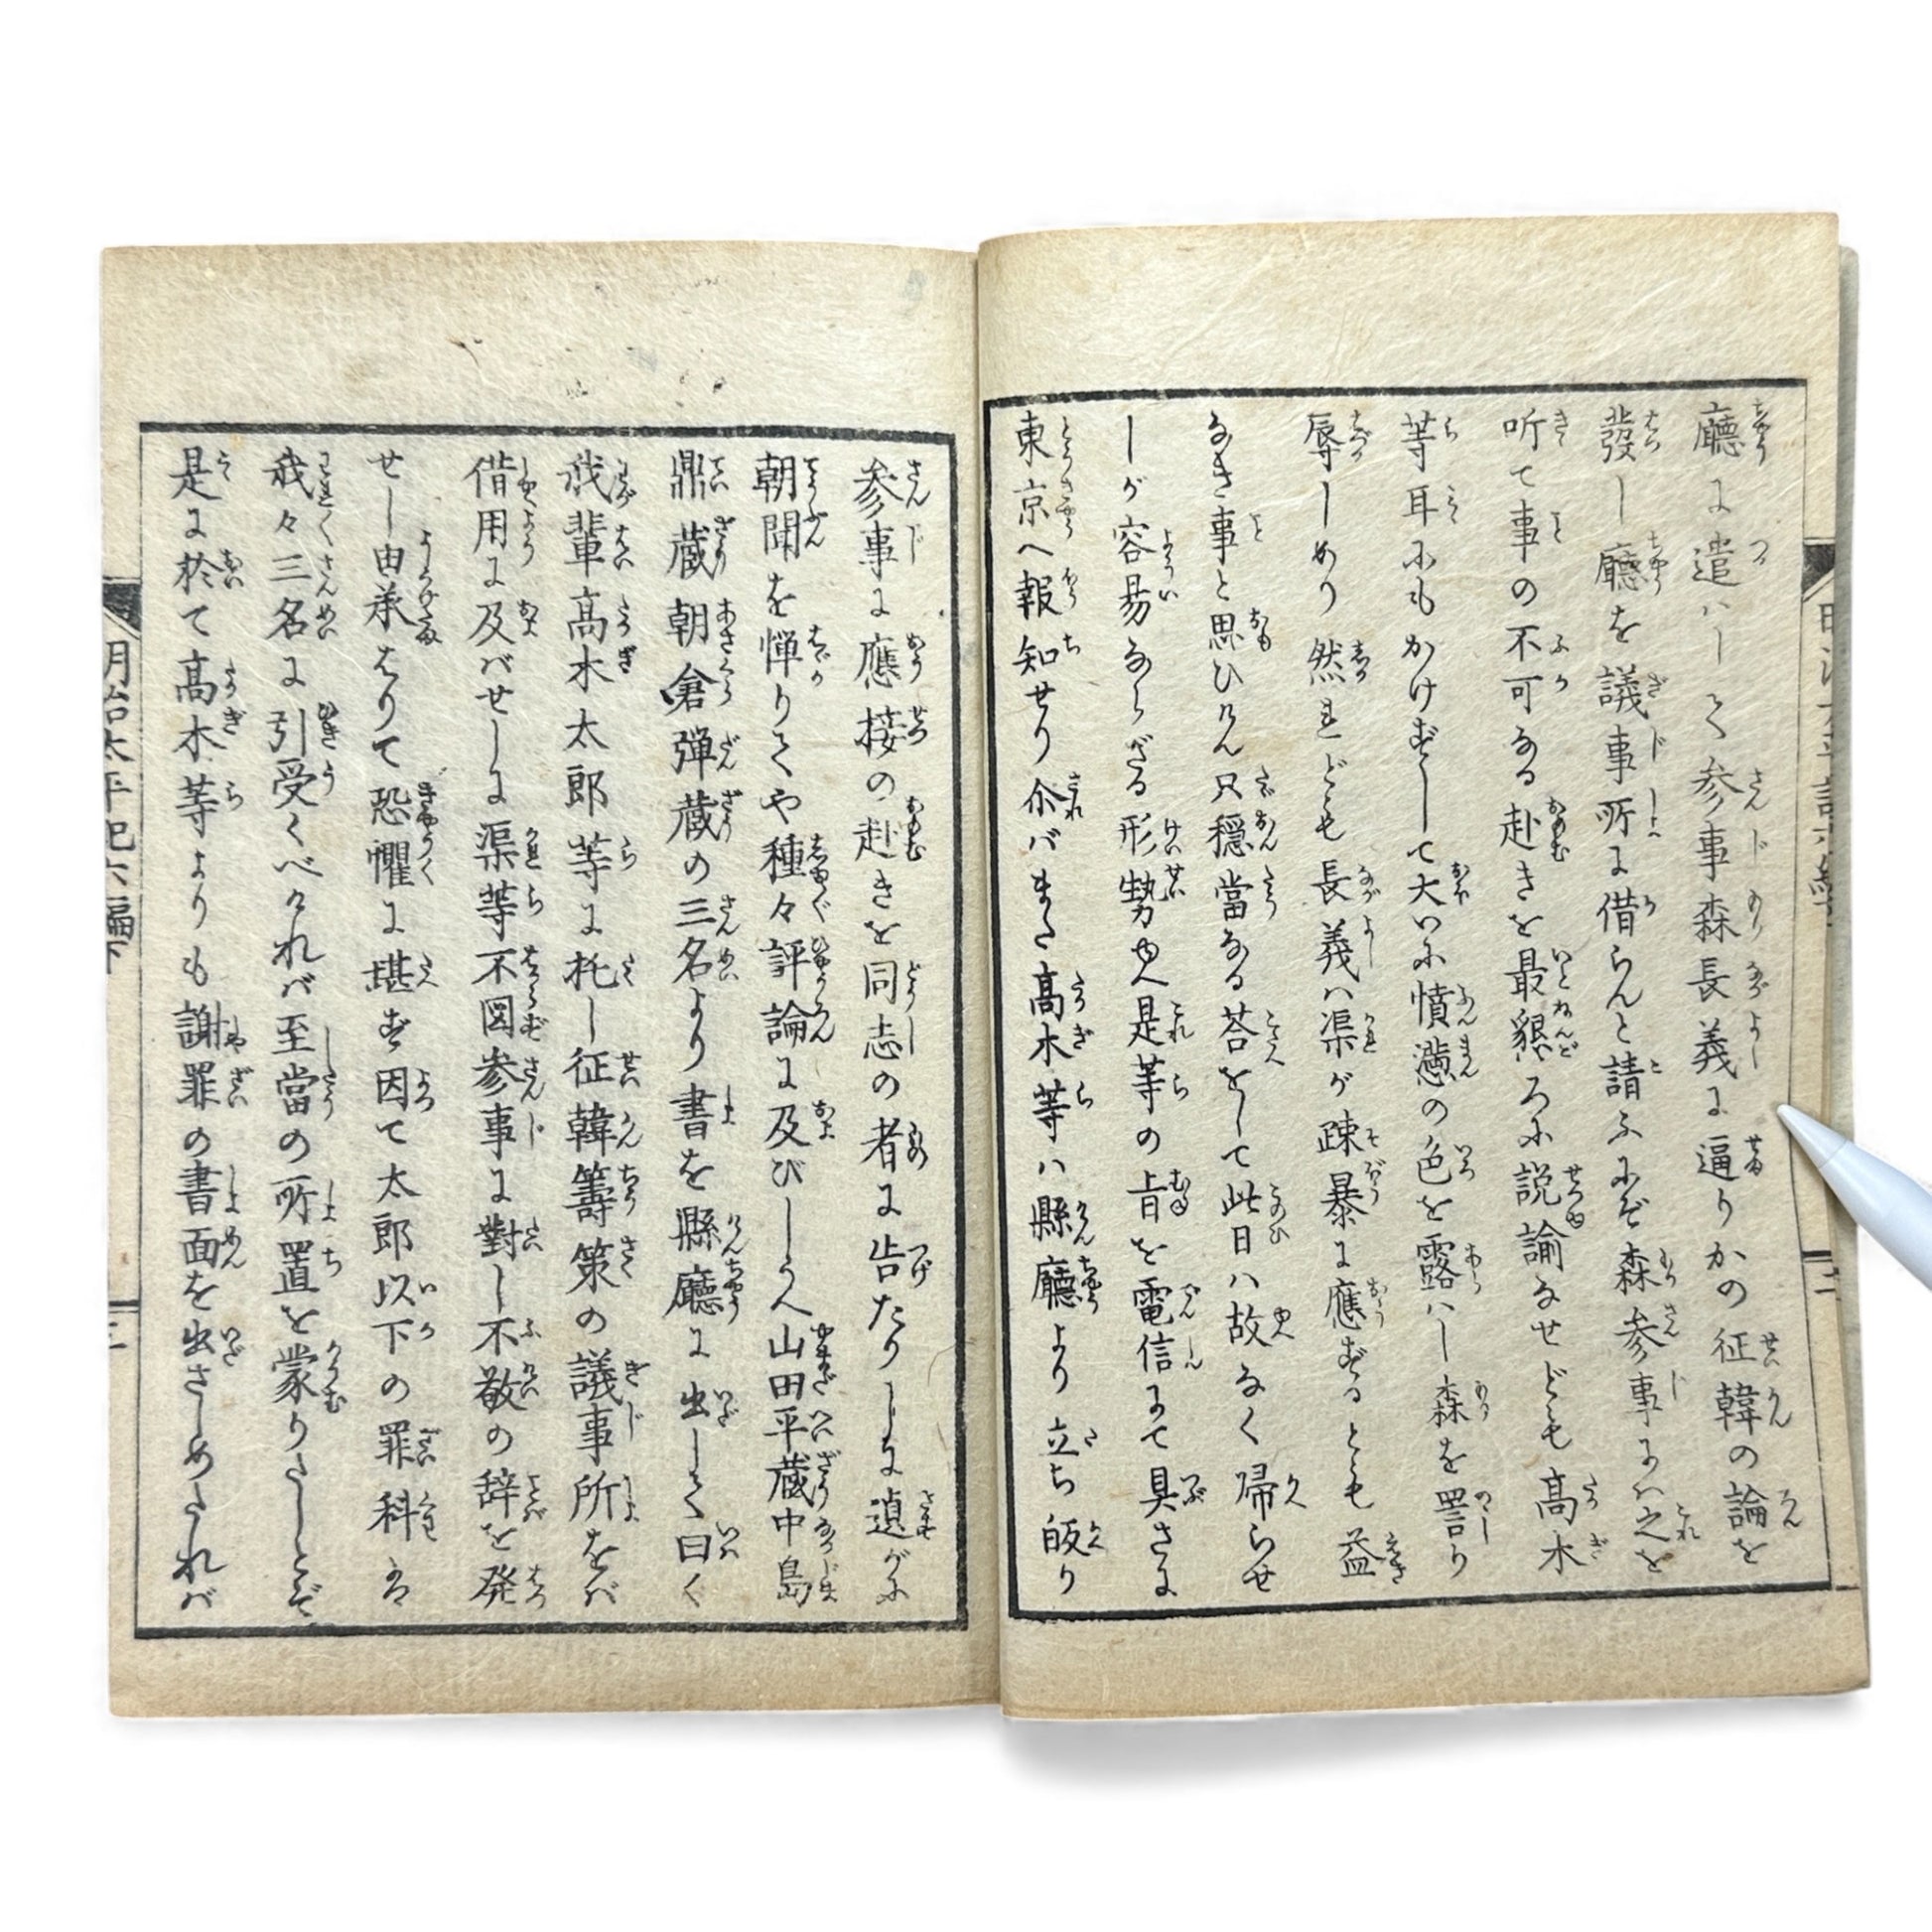 廳に遣ハして参事森長義に逼りかの征韓の論を
發し廳を議事所に借らんと請ふにぞ森参事にハ之を
听て事の不可なる赴きを最懇ろに説諭なせども高木
等耳にもかけずして大いに憤懣の色を露ハし森を詈り
辱しめり然れども長義ハ渠が疎暴に應ずるとも益
なき事と思ひけん只穏當なる荅をして此日ハ故なく帰らせ
しが容易ならざる形勢ゆへ是等の旨を電信にて具さに
東京へ報知せり尒バまた高木等ハ縣廳より立ち皈り
参事に應接の赴きを同志の者に告たりしに遉がに
朝聞を憚りてや種々評論に及びしうへ山田平蔵中島
鼎蔵朝倉弾蔵の三名より書を縣廳に出して曰く
我輩高木太郎等に托し征韓籌策の議事所をバ
借用に及バせしに渠等不図参事に對し不敬の辞を発
せし由承はりて恐懼に堪ず因て太郎以下の罪科ハ
我々三名に引受くべけれバ至當の所置を蒙りたしとぞ
是に於て高木等よりも謝罪の書面を出さしめたれバ
明治太平記六編下
三